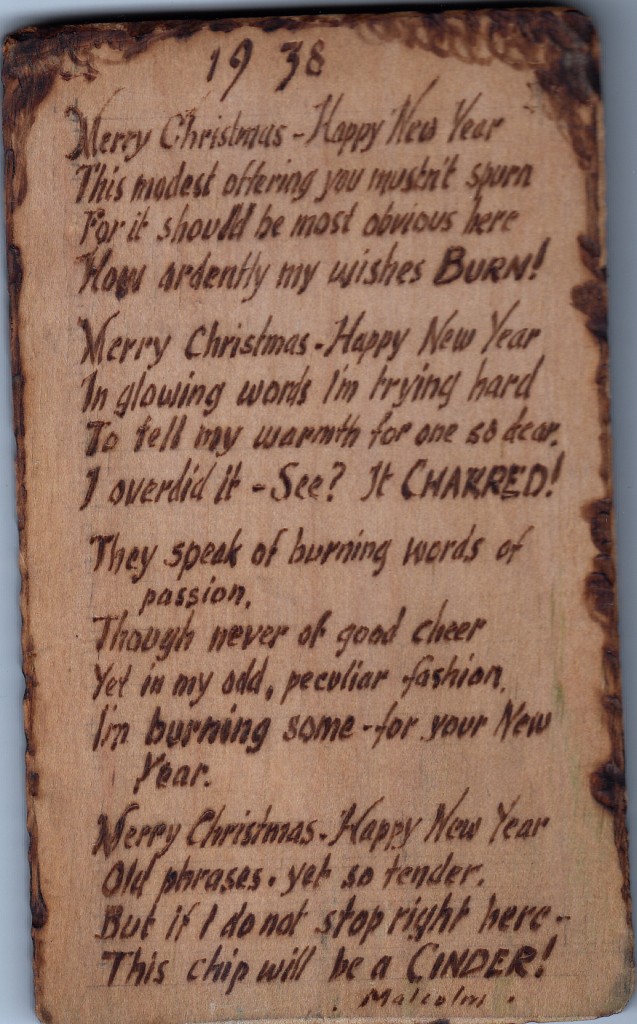 1938
Merry Christmas - Happy New Year
This modest offering you mustn't spurn
For it should be most obvious here
How ardently my wishes BURN!
Merry Christmas - Happy New Year
In glowing words I'm trying hard
To tell my warmth for one so dear.
I overdid it - See? It CHARRED!
They speak of burning words of
passion,
Though never of good cheer
Yet in my odd, peculiar fashion,
I'm burning some - for your New
Year.
Merry Christmas - Happy New Year
Old phrases - yet so tender.
But if I do not stop right here -
This chip will be a CINDER!
Malcolm.